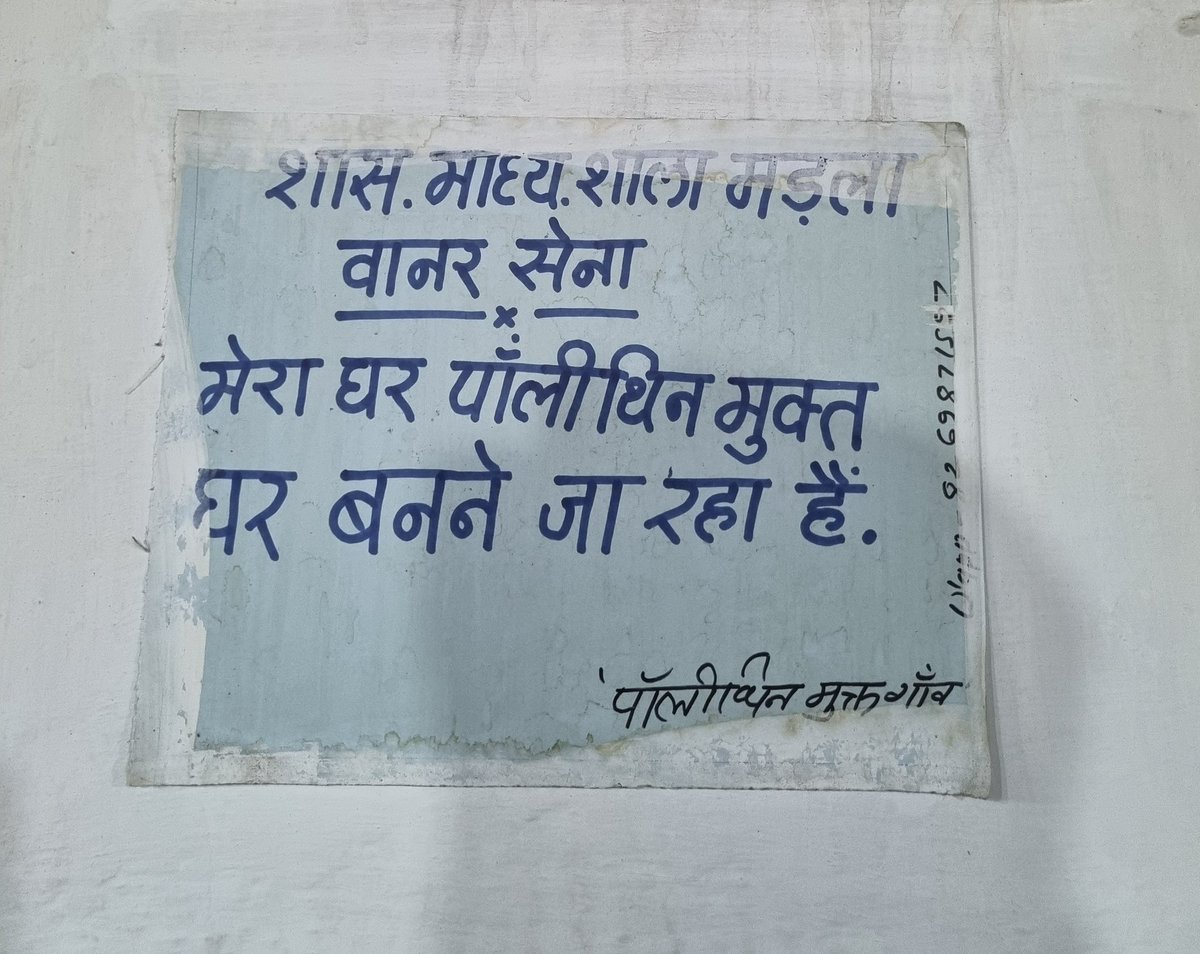 शास. माध्य. शाला मड़ला
वानर सेना
x
मेरा घर पॉलीथिन मुक्त
घर बनने जा रहा हैं.
पॉलीथिन मुक्त गाँव